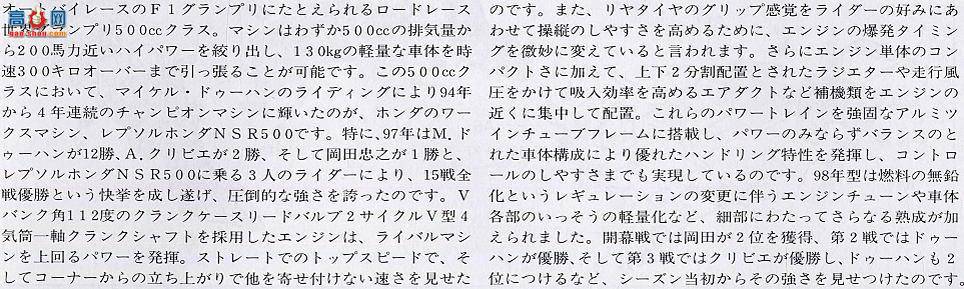 オートバイレースのＦ１グランプリにたとえられるロードレース
グランプリ500ccクラス。マシンはわずか500ccの排気量か
ら200馬力近いハイパワーを絞り出し、130kgの軽量な車体を時
速300キロオーバーまで引っ張ることが可能です。この500ccク
ラスにおいて、マイケル・ドゥーハンのライディングにより94年
から４年連続のチャンピオンマシンに輝いたのが、ホンダのワー
クスマシン、レプソルホンダＮＳＲ500です。特に、97年はM.ド
ゥーハンが12勝、A.クリビエが２勝、そして岡田忠之が１勝と、
レプソルホンダＮＳＲ500に乗る３人のライダーにより、15戦全
戦優勝という快挙を成し遂げ、圧倒的な強さを誇ったのです。Ｖ
バンク角112度のクランクケースリードバルブ２サイクルＶ型４
気筒一軸クランクシャフトを採用したエンジンは、ライバルマシ
ンを上回るパワーを発揮。ストレートでのトップスピードで、そ
してコーナーからの立ち上がりで他を寄せ付けない速さを見せた
のです。また、リヤタイヤのグリップ感覚をライダーの好みにあ
わせて操縦のしやすさを高めるために、エンジンの爆発タイミン
グを微妙に変えていると言われます。さらにエンジン単体のコン
パクトさに加えて、上下２分割配置とされたラジエターや走行風
圧をかけて吸入効率を高めるエアダクトなど補機類をエンジンの
近くに集中して配置。これらのパワートレインを強固なアルミツ
インチューブフレームに搭載し、パワーのみならずバランスのと
れた車体構成により優れたハンドリング特性を発揮し、コントロ
ールのしやすさまでも実現しているのです。98年型は燃料の無鉛
化というレギュレーションの変更に伴うエンジンチューンや車体
各部のいっそうの軽量化など、細部にわたってさらなる熟成が加
えられました。開幕戦では岡田が２位を獲得、第２戦ではドゥー
ハンが優勝、そして第３戦ではクリビエが優勝し、ドゥーハンも２
位につけるなど、シーズン当初からその強さを見せつけたのです。